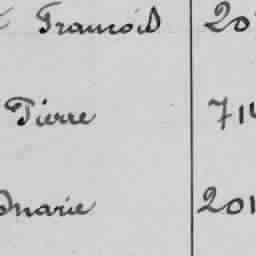 François 20
Pierre 71
Marie 201